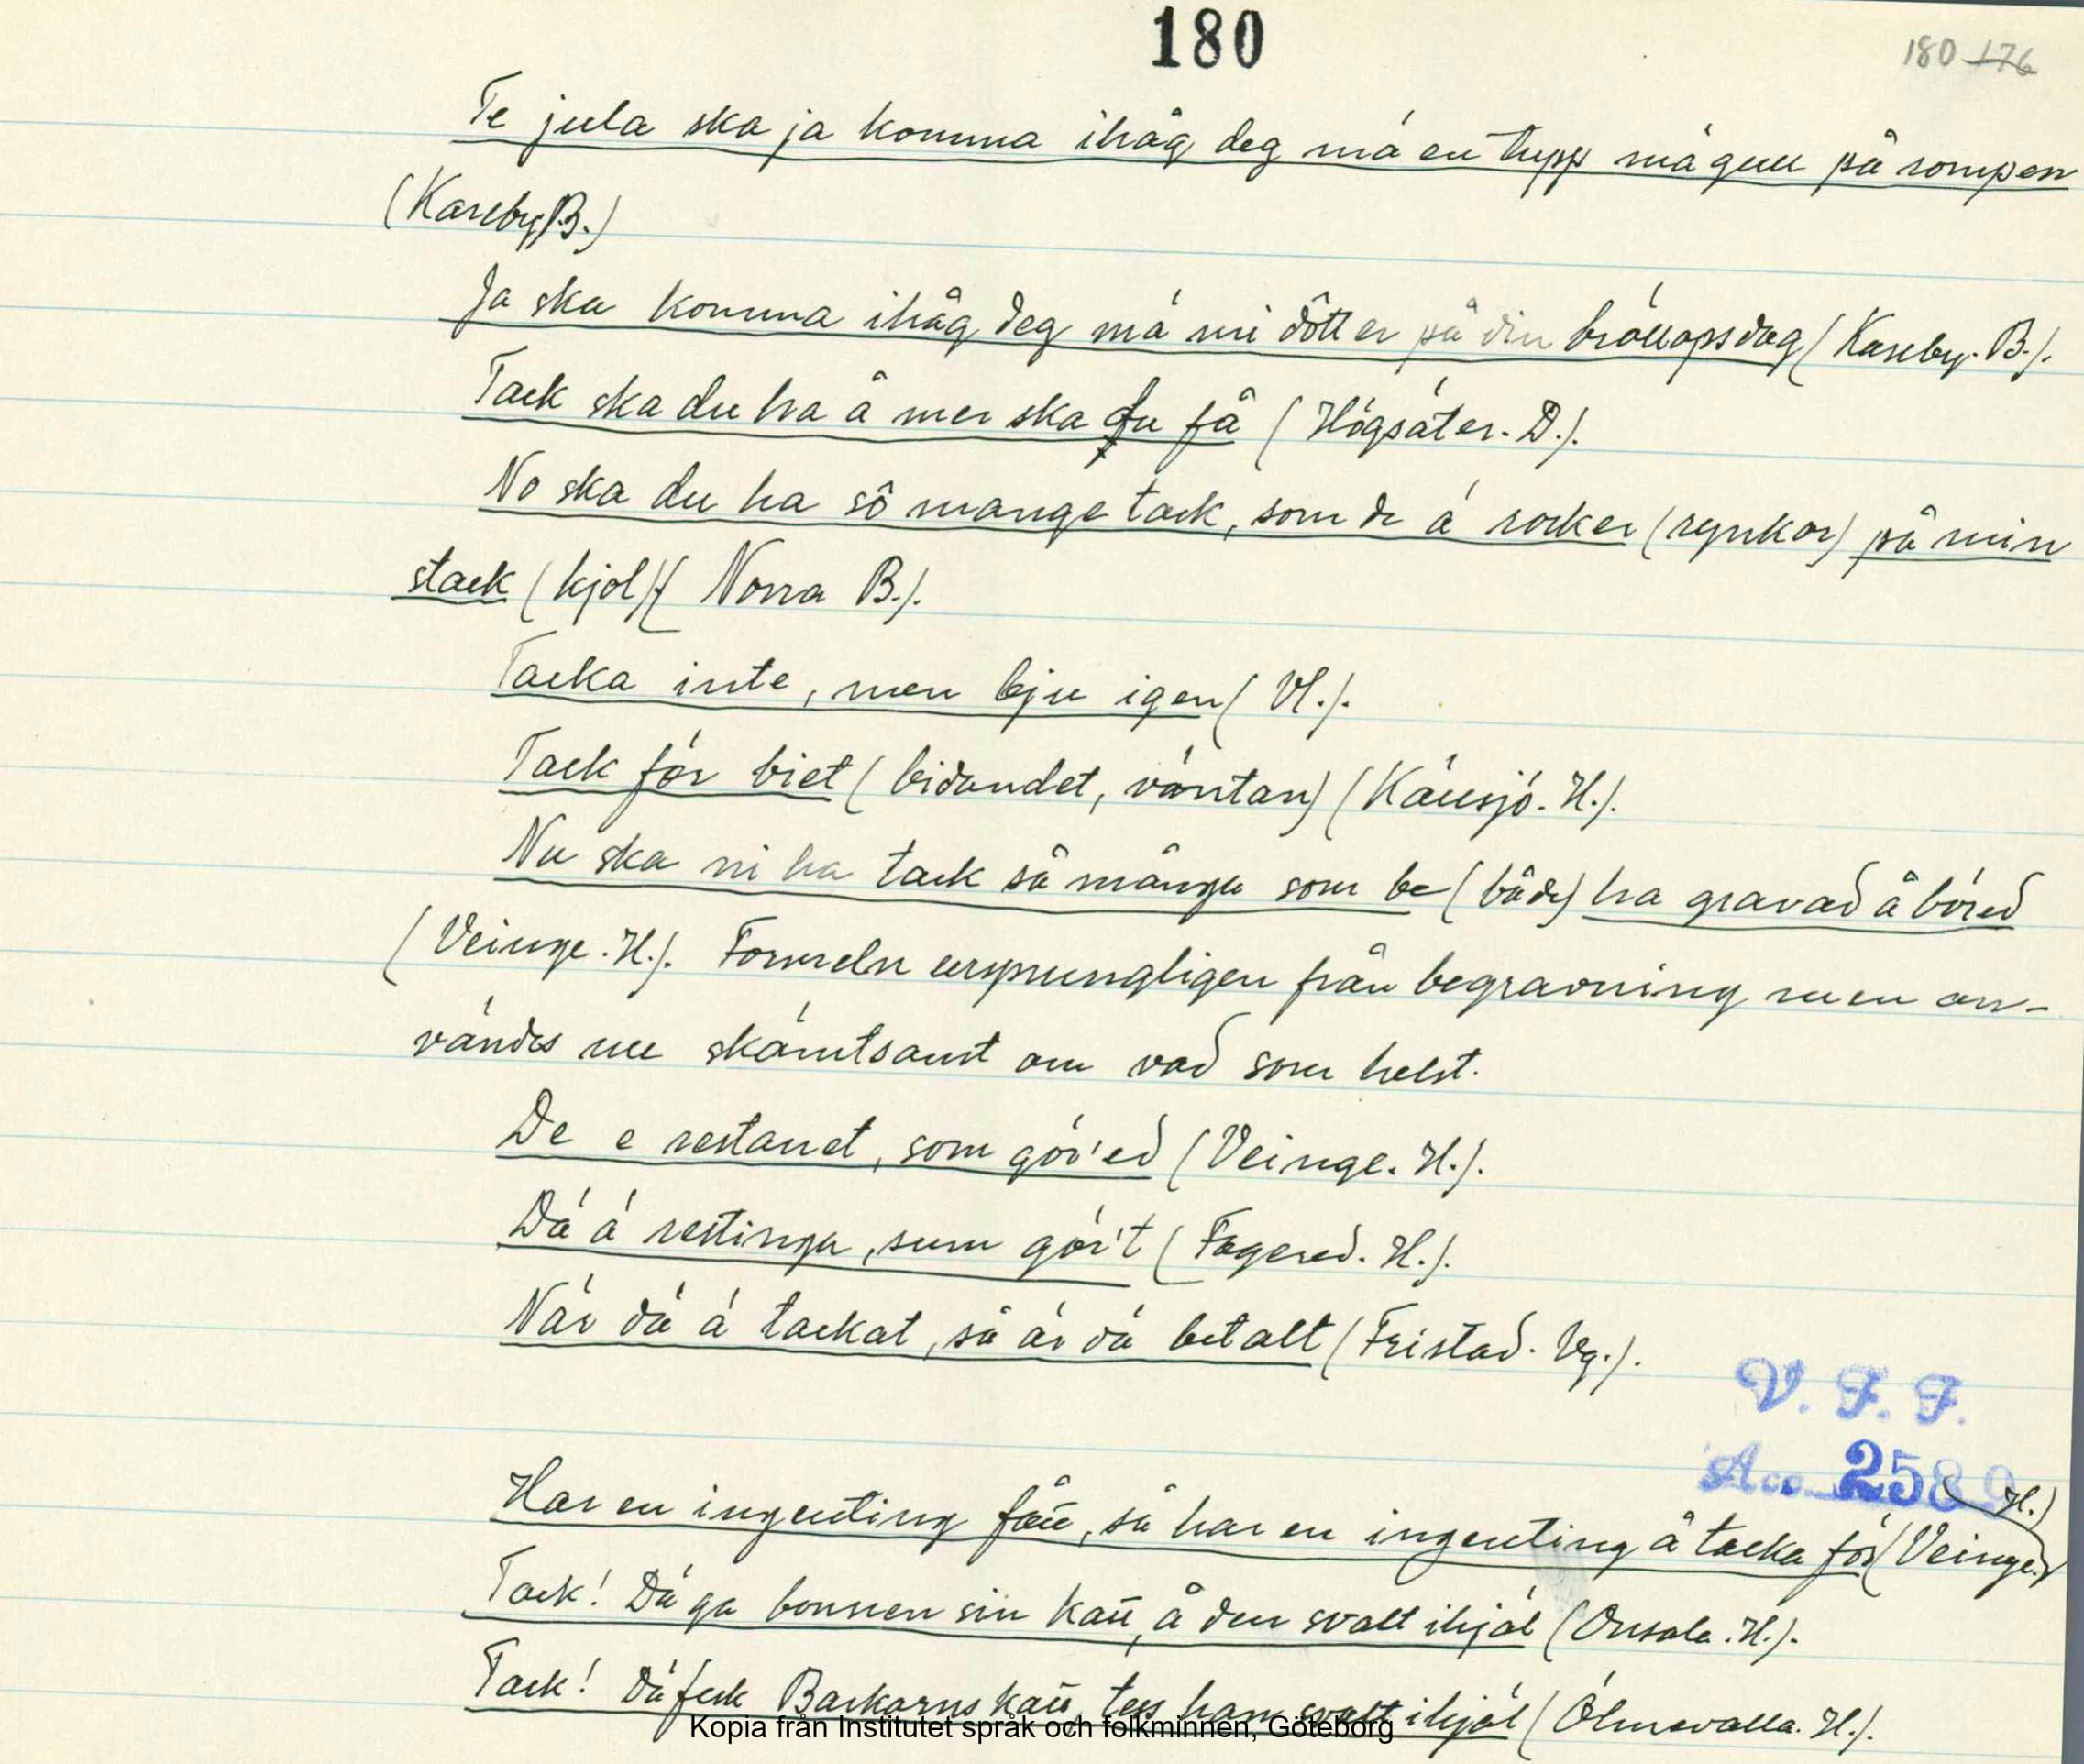 180
180 176
Te jula ska ja komma ihåg deg mä en tupp mä gull på rompen
(Kareby B.)
Ja ska komma ihåg deg mä mi dôtter på din bröllopsdag (Kareby. B.).
Tack ska du ha å mer ska du få (Högsäter. D.).
No ska du ha sô mange tack, som de ä rocker (rynkor) på min
stack (kjol) (Norra B.).
Tacka inte, men bju igen (Vl.).
Tack för biet (bidandet, väntan) (Källsjö. H.).
Nu ska ni ha tack så många som be (både) ha gravad å böred
(Veinge. H.). Formeln ursprungligen från begravning men an-
vändes nu skämtsamt om vad som helst.
De e restanet, som gör'ed (Veinge. H.).
Dä ä restinga, sum gör't (Fagered. H.).
När dä ä tackat, så är dä betalt (Fristad. Vg.).
V. F. F.
Acc. 2589
Har en ingenting fåū, så har en ingenting å tacka för (Veinge. H.)
Tack! Dä ga bonnen sin kaū, å den svalt ihjäl (Onsala. H.).
Tack! Dä feck Backarns kaū, tess han svalt ihjäl (Ölmevalla. H.).
Kopia från Institutet språk och folkminnen, Göteborg